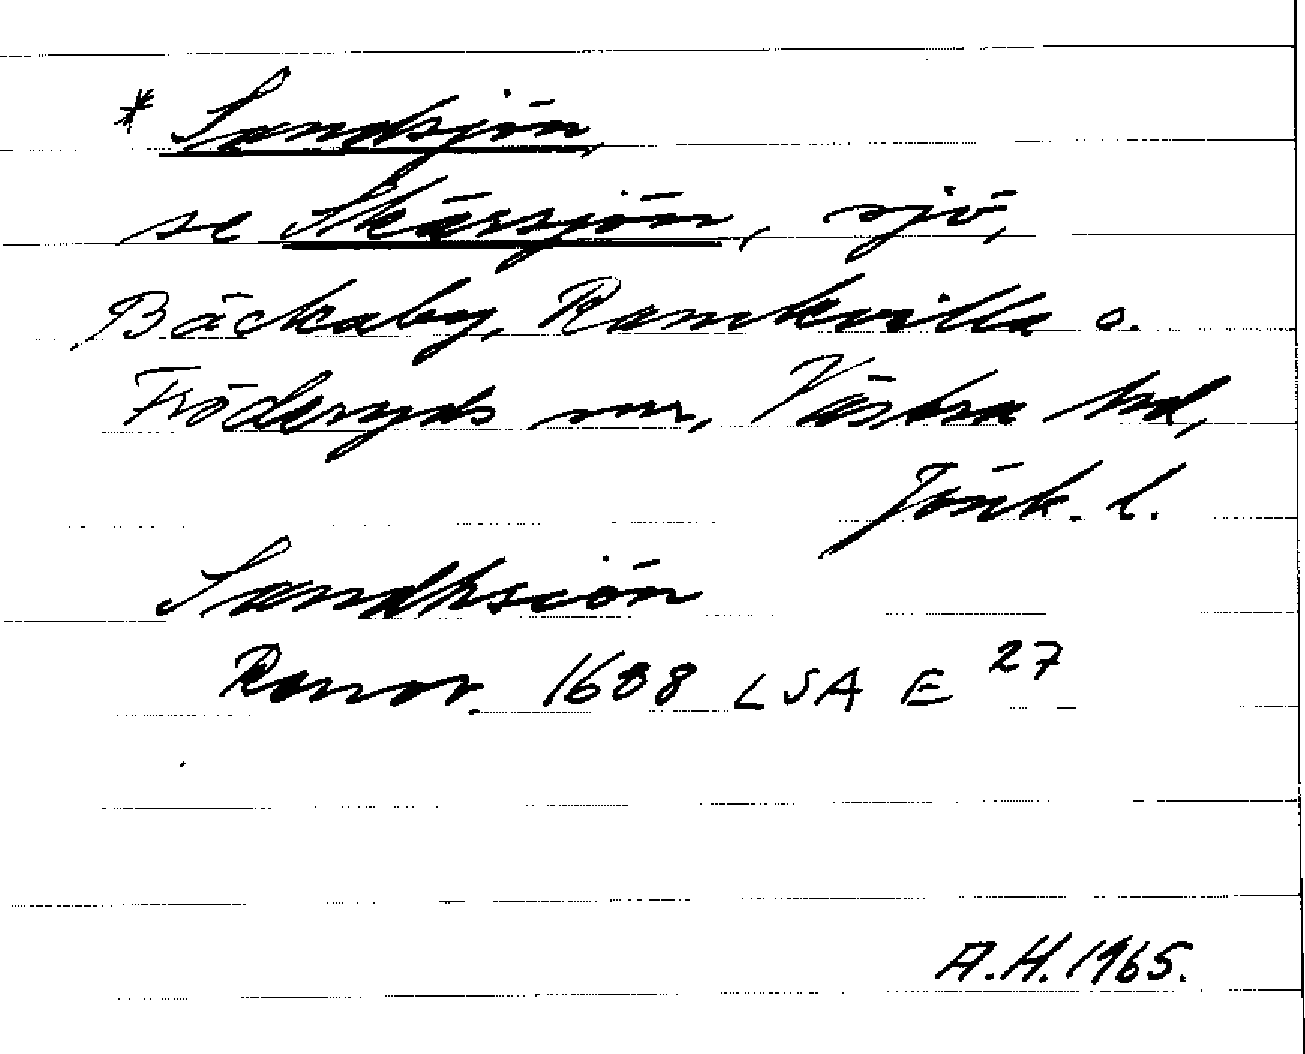 * Sandsjön,
se Skärsjön, sjö,
Bäckaby, Ramkvilla o.
Fröderyds snr, Västra hd,
Jönk. l.
Sandhsiön
Ranov. 1688 LSA E 27
A.H. 1965.